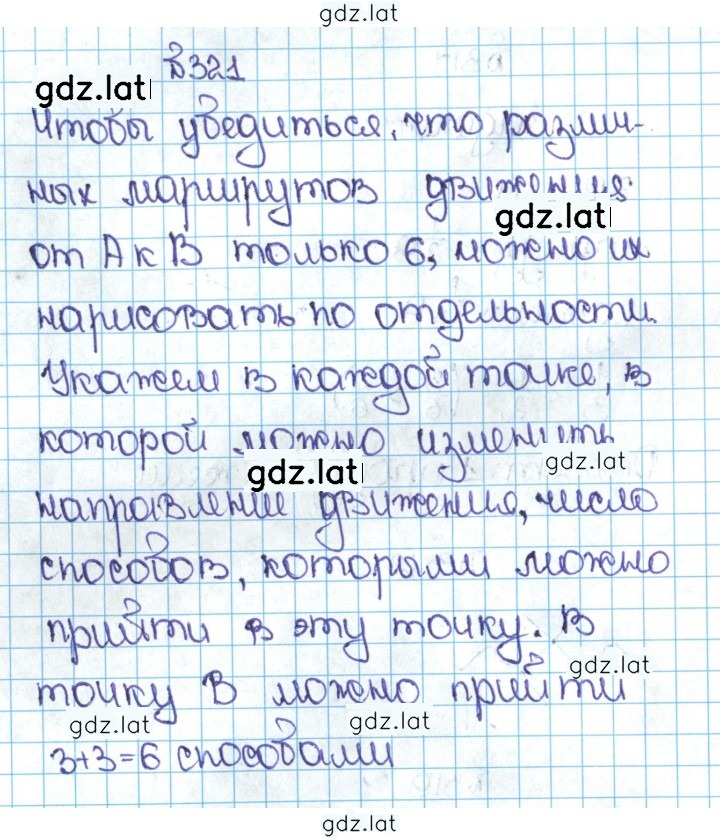 gdz.lat
№ 321
gdz.lat
Чтобы убедиться, что различ-
ных маршрутов движения
gdz.lat
от А к В только 6, можно их
нарисовать по отдельности.
Укажем в каждой точке, в
которой можно изменить
gdz.lat
gdz.lat
направление движения, число
способов, которыми можно
прийти в эту точку. В
gdz.lat
точку В можно прийти
gdz.lat
gdz.lat
3+3=6 способами
gdz.lat